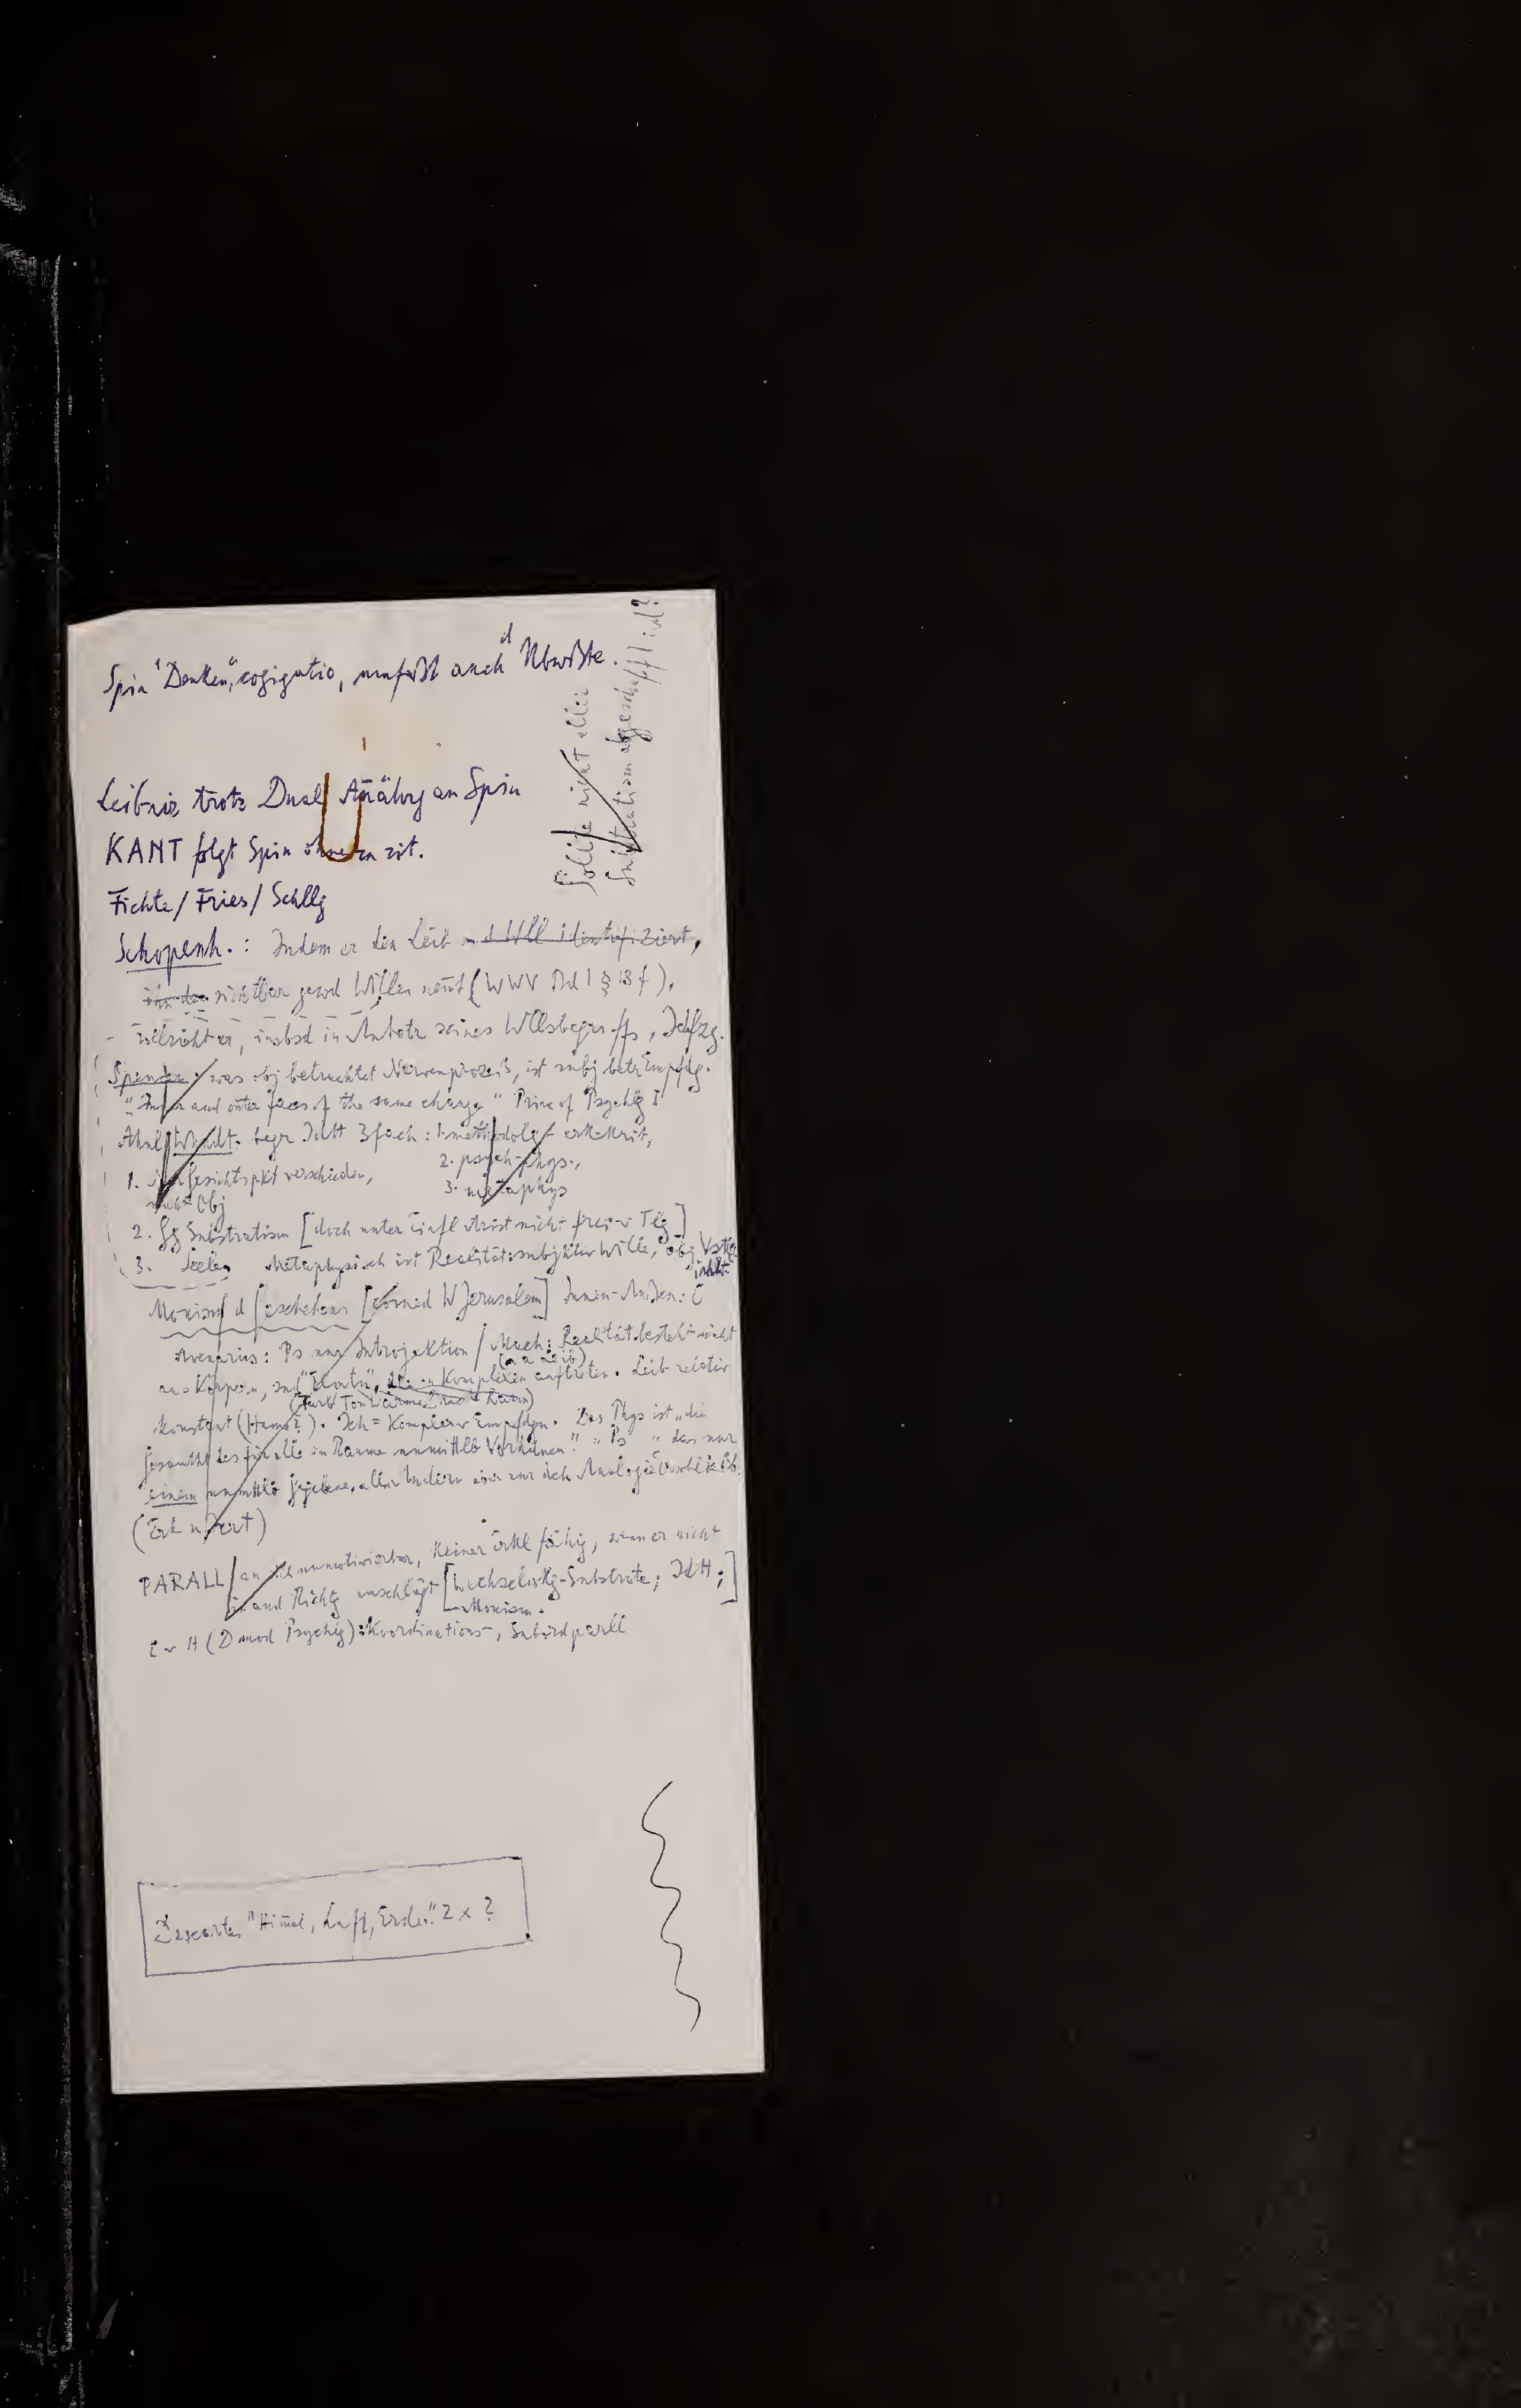 Spin "Denken", cogigatio, umfaßt auch d Ubwßte.
Sollte nicht alle
Substratism abgeschafft ind?
Leibniz trotz Dual Anähg an Spin
KANT folgt Spin ohne zn zit.
Fichte / Fries / Schllg
Schopenh. : Indem er den Leib m d Wll identifiziert,
ihn den sichtbar gewd Willen nent (WWV Bd I § 18 f),
er, insbsd in Anbetr seines Wllsbegriffs, Idtfzg.
Spencer : was obj betrachtet Nervenprozeß, ist subj betr Empfdg.
"Inner and outer faces of the same change" Princ of Psychlg I
Ähnl Wundt. begr IdtH 3fach : 1. methodolg erk-krit,
2. psych-phys.,
3. metaphys
1. Gesichtspkt verschieden,
nicht Obj
2. Gg Substratism [doch unter Einfl Arist nicht frei v Tlg]
3. Seele, Metaphysisch ist Realität: subjktiv Wille, obj Vstllg
inhlt
Monism d Geschehens [W Jerusalem] Innen-Außen:
Avenarius: Ps nur Introjektion / Mach: Realität besteht nicht
(a a Leib)
aus Körpern, snd "Elemtn", die in Komplexen auftreten. Leib relativ
(Farb Ton Wärme Druck Raum)
konstant (Hume?). Ich = Komplex v Empfdgn. Das Phys ist "die
Gesamtht des für alle im Raume unmittlb Vorhdnen". " Ps " das nur
einem unmittlb Gegebene, allen andern aber nur dch Analogie
(Erk u Irrt)
PARALL / an sich unmotivierbar, keiner Erkl fähig, wenn er nicht
in and Richtg umschlägt [Wechselwkg-Substrate; IdtH;]
Monism.
E v H (D mod Psychlg): Koordinations-, Subordparll
Descartes "Himmel, Luft, Erde." 2 x ?